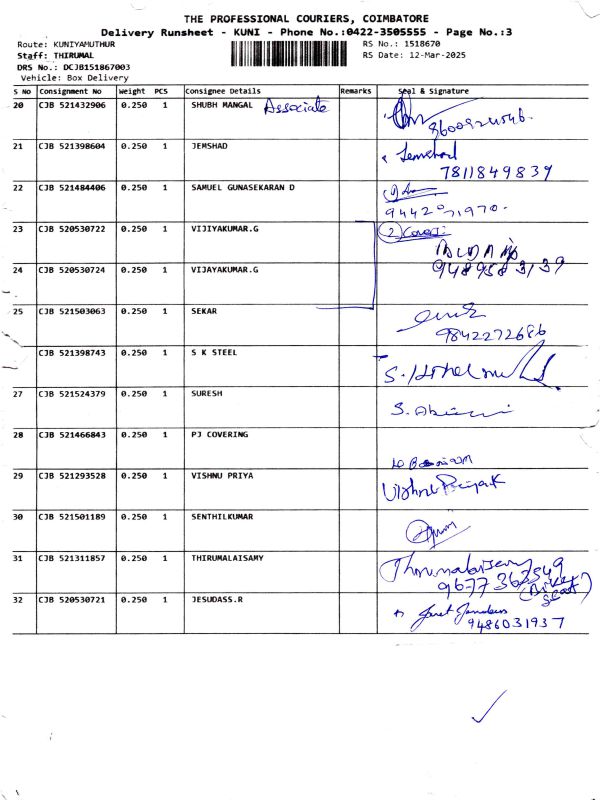 THE PROFESSIONAL COURIERS, COIMBATORE
Delivery Runsheet - KUNI - Phone No.:0422-3505555 - Page No.:3
Route: KUNIYAMUTHUR RS No.: 1518670
Staff: THIRUMAL RS Date: 12-Mar-2025
DRS No.: DCJB151867003
Vehicle: Box Delivery
S No Consignment No Weight PCS Consignee Details Remarks Seal & Signature
20 CJB 521432906 0.250 1 SHUBH MANGAL Associate
21 CJB 521398604 0.250 1 JEMSHAD Jemshad
7811849839
22 CJB 521484406 0.250 1 SAMUEL GUNASEKARAN D
23 CJB 520530722 0.250 1 VIJIYAKUMAR.G 2 Cover
24 CJB 520530724 0.250 1 VIJAYAKUMAR.G
9489583139
25 CJB 521503063 0.250 1 SEKAR
9842272686
CJB 521398743 0.250 1 S K STEEL
27 CJB 521524379 0.250 1 SURESH
28 CJB 521466843 0.250 1 PJ COVERING
29 CJB 521293528 0.250 1 VISHNU PRIYA Vishnu
30 CJB 521501189 0.250 1 SENTHILKUMAR
31 CJB 521311857 0.250 1 THIRUMALAISAMY Thirumalaisamy
9677362549
32 CJB 520530721 0.250 1 JESUDASS.R
9486031937